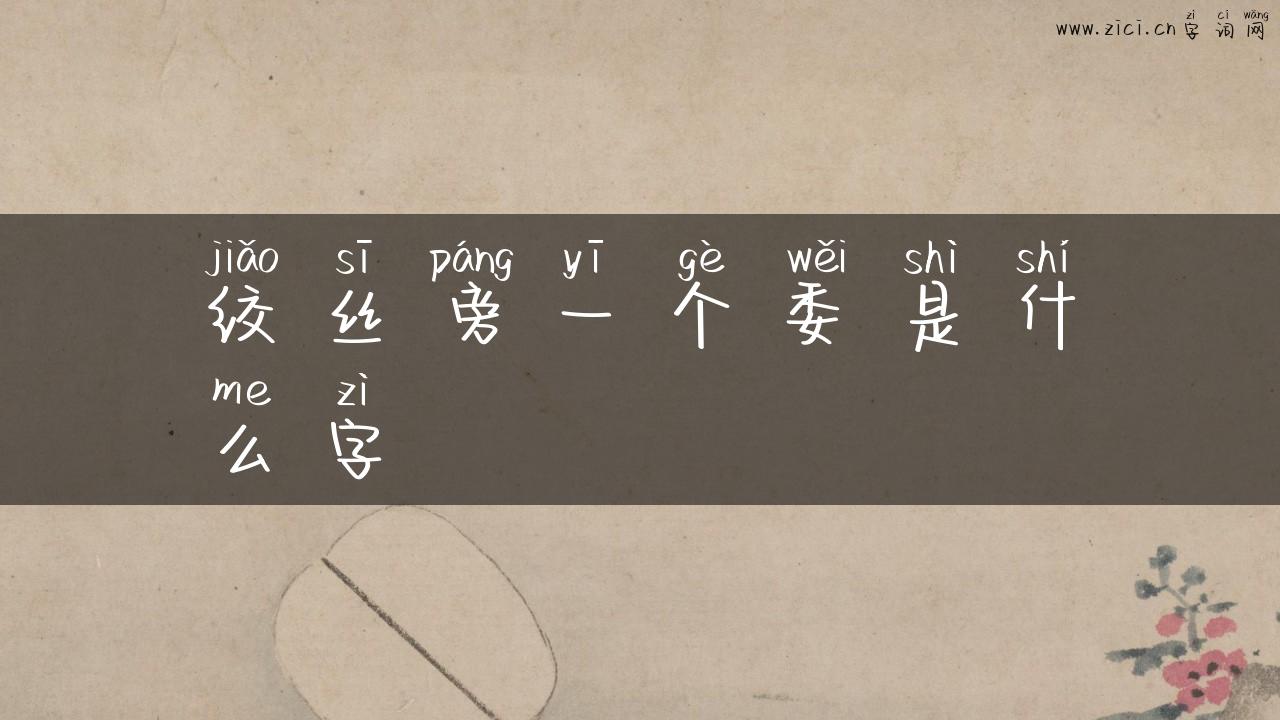 zì cí wǎng
www.zici.cn 字 词 网
jiǎo sī páng yī gè wěi shì shí
绞 丝 旁 一 个 委 是 什
me zì
么 字